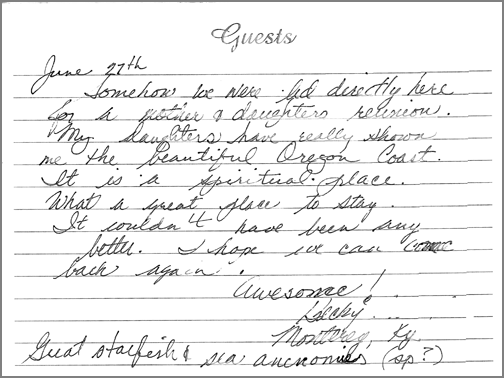 Guests
June 27th
Somehow we were led directly here
for a mother & daughters reunion.
My daughters have really shown
me the beautiful Oregon Coast.
It is a spiritual place.
What a great place to stay.
It couldn't have been any
better. I hope we can come
back again.
Awesome!
Ky.
Great starfish & sea anenomies (sp?)